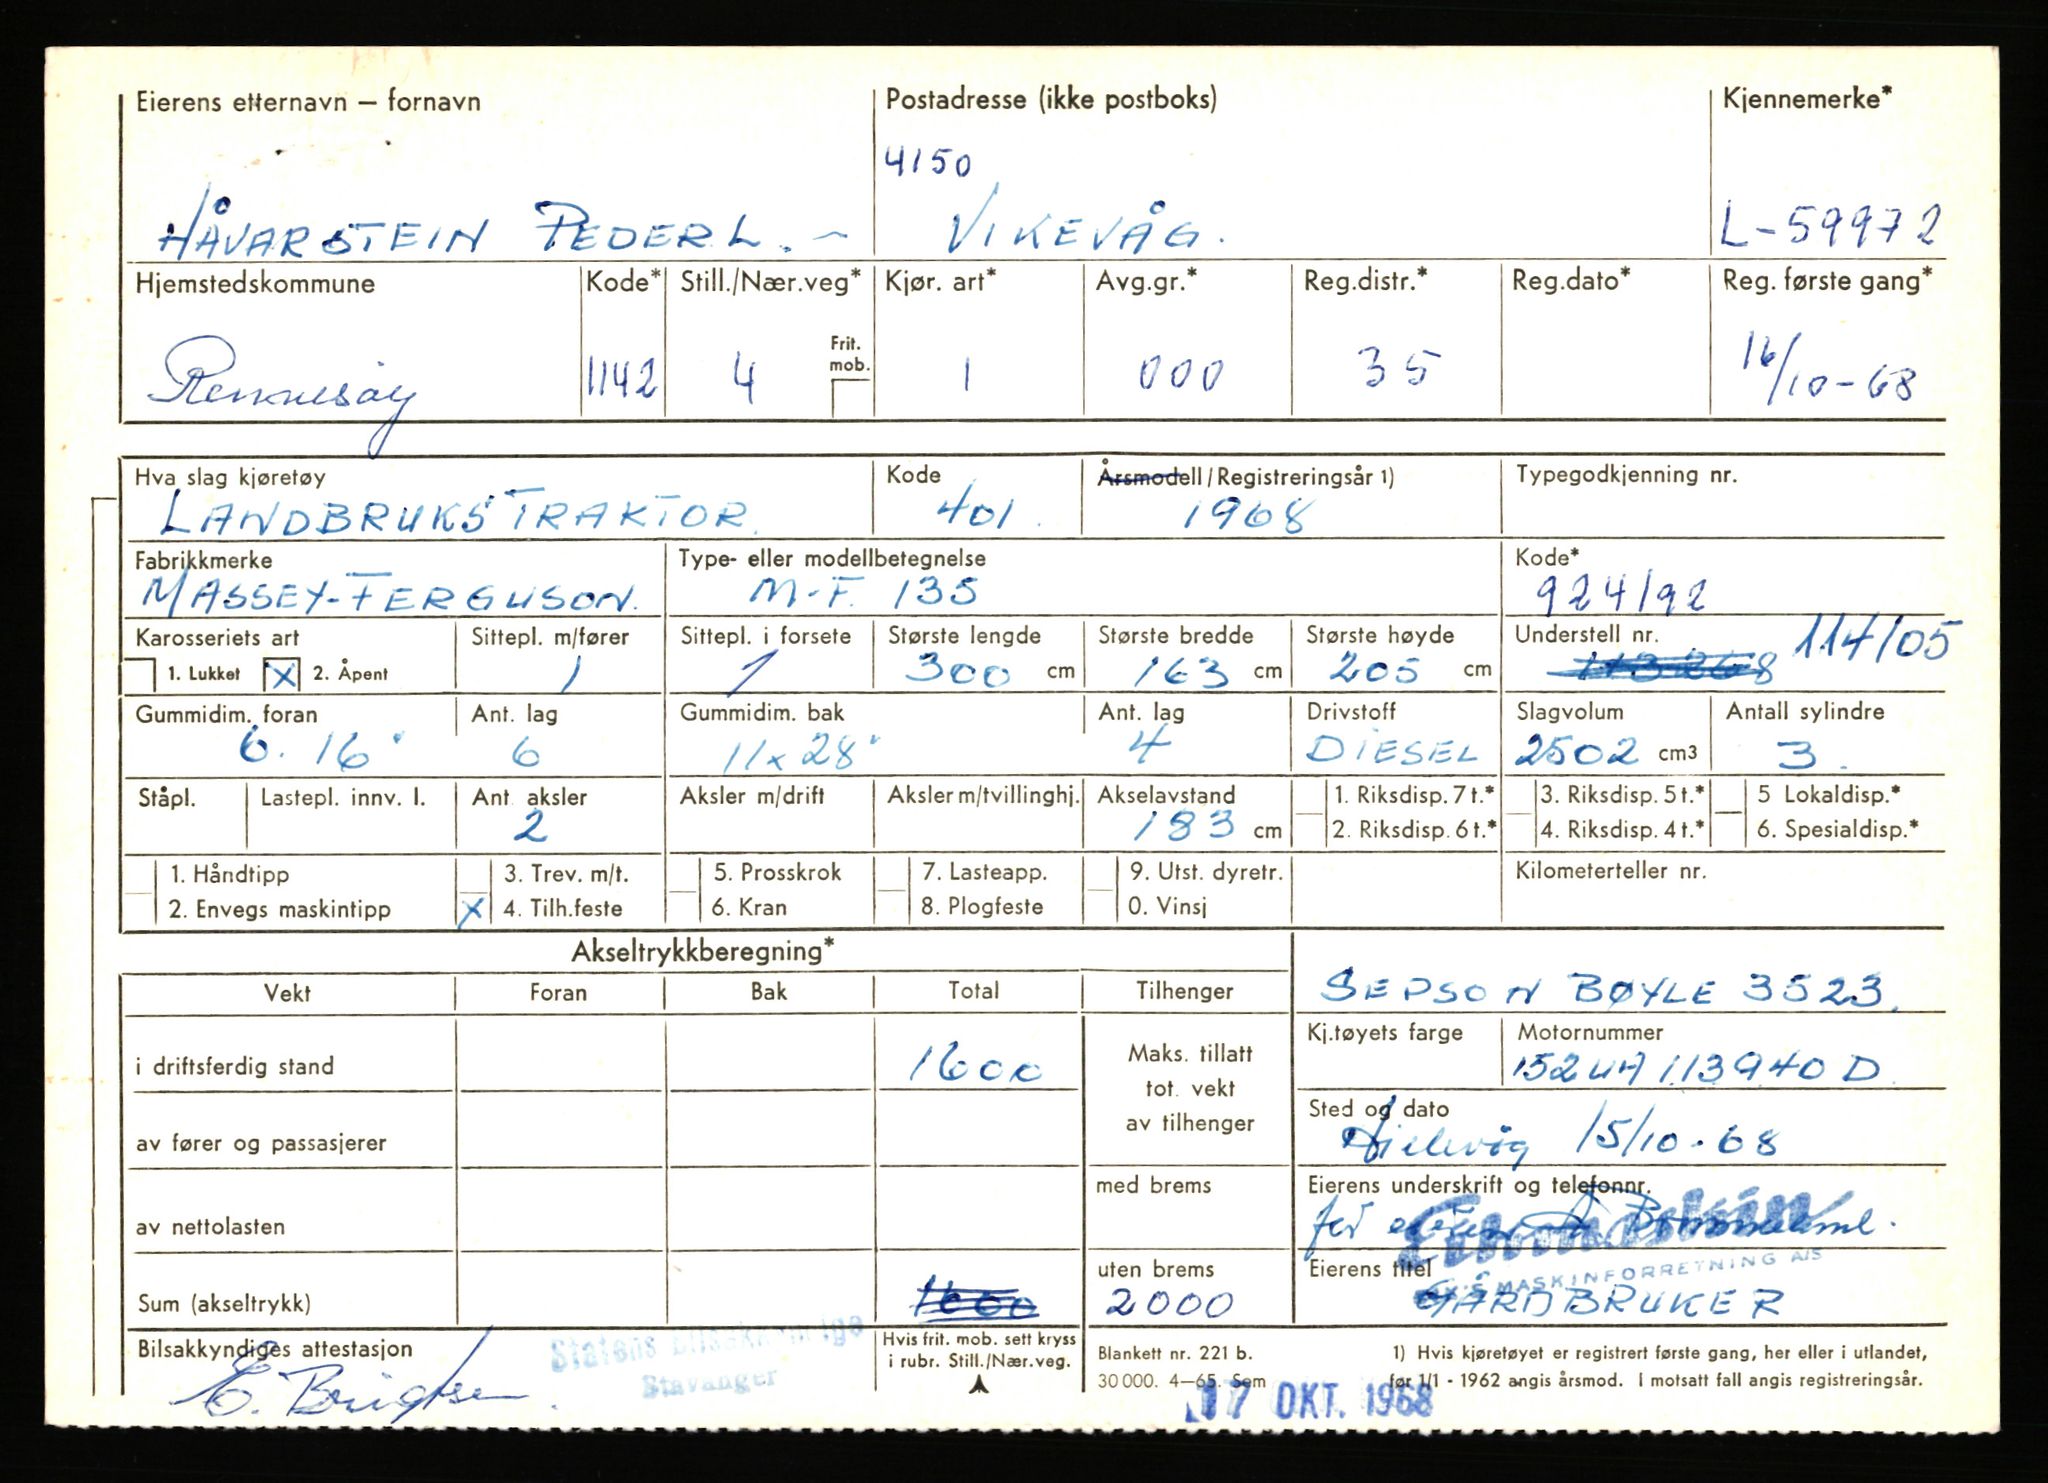 Eierens etternavn – fornavn Postadresse (ikke postboks) Kjennemerke*
4150
HÅVARSTEIN PEDER L. – VIKEVÅG. L-59972
Hjemstedskommune Kode* Still./Nær.veg* Kjør. art* Avg.gr.* Reg.distr.* Reg.dato* Reg. første gang*
Frit. mob.
Rennesøy 1142 4 1 000 35 16/10-68
Hva slag kjøretøy Kode Årsmodell/Registreringsår 1) Typegodkjenning nr.
LANDBRUKSTRAKTOR. 401. 1968
Fabrikkmerke Type- eller modellbetegnelse Kode*
MASSEY-FERGUSON. M-F. 135 924/92
Karosseriets art Sittepl. m/fører Sittepl. i forsete Største lengde Største bredde Største høyde Understell nr. 114105
1. Lukket X 2. Åpent 1 1 300 cm 163 cm 205 cm
Gummidim. foran Ant. lag Gummidim. bak Ant. lag Drivstoff Slagvolum Antall sylindre
6. 16" 6 11x28" 4 DIESEL 2502 cm3 3.
Ståpl. Lastepl. innv. l. Ant. aksler Aksler m/drift Aksler m/tvillinghj. Akselavstand 1. Riksdisp. 7 t.* 3. Riksdisp. 5 t.* 5 Lokaldisp.*
2 183 cm 2. Riksdisp. 6 t.* 4. Riksdisp. 4 t.* 6. Spesialdisp.*
1. Håndtipp 3. Trev. m/t. 5. Prosskrok 7. Lasteapp. 9. Utst. dyretr. Kilometerteller nr.
2. Envegs maskintipp X 4. Tilh.feste 6. Kran 8. Plogfeste 0. Vinsj
Akseltrykkberegning*
Vekt Foran Bak Total Tilhenger SEPSON BØYLE 3523.
Kj.tøyets farge Motornummer
i driftsferdig stand 1600 Maks. tillatt tot. vekt av tilhenger 152UA113940D
Sted og dato
av fører og passasjerer 15/10-68
med brems Eierens underskrift og telefonnr.
av nettolasten for eieren
uten brems Eierens titel
MASKINFORRETNING A/S
Sum (akseltrykk) 1600 2000 GÅRDBRUKER
Bilsakkyndiges attestasjon Statens bilsakkyndige Hvis frit. mob. sett kryss Blankett nr. 221 b. 1) Hvis kjøretøyet er registrert første gang, her eller i utlandet,
Stavanger i rubr. Still./Nær.veg. 30 000. 4–65. Sem før 1/1 - 1962 angis årsmod. I motsatt fall angis registreringsår.
17 OKT. 1968